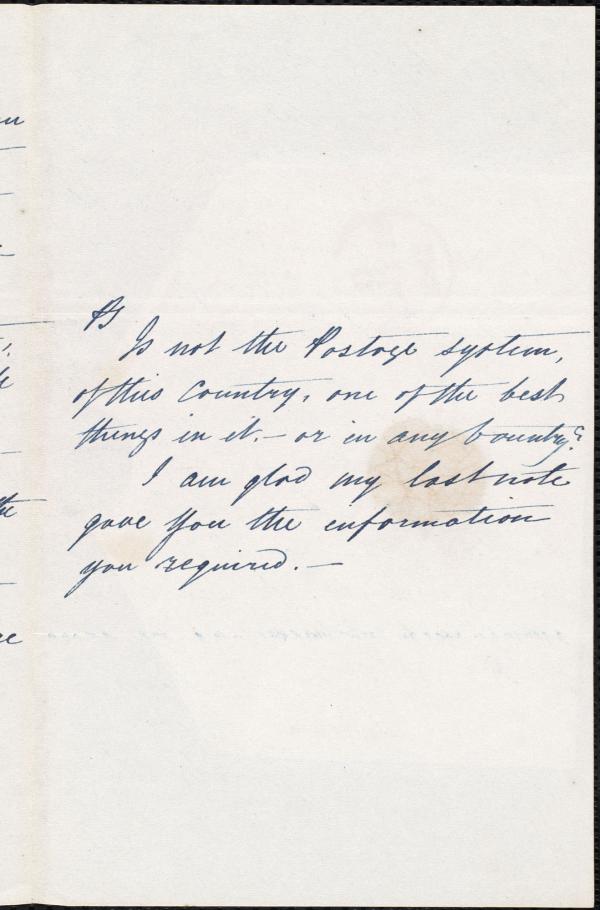 PS
Is not the Postage system,
of this Country, one of the best
things in it. — or in any Country?
I am glad my last note
gave you the information
you required. —